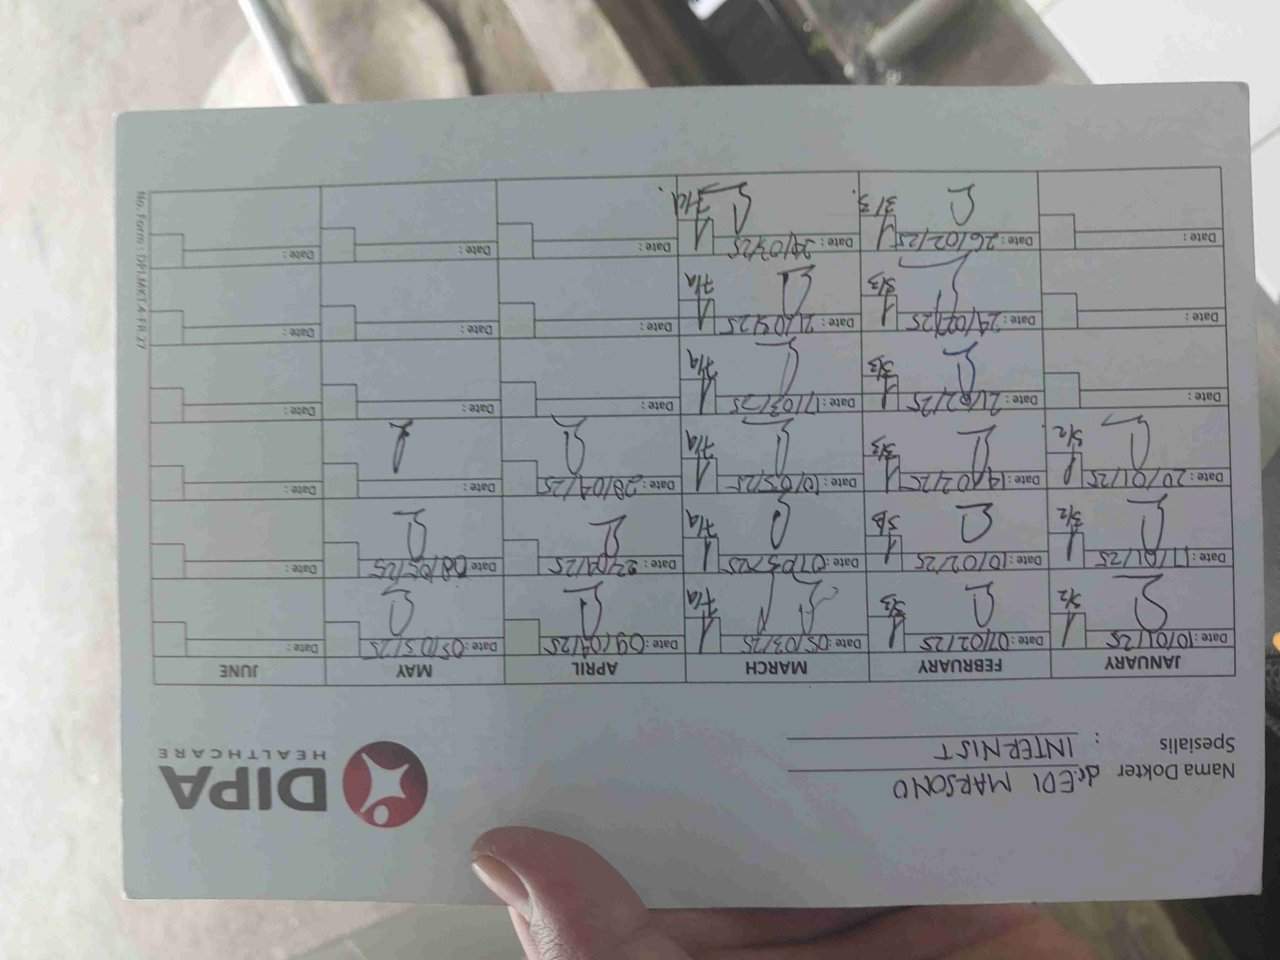 DIPA
HEALTHCARE
Nama Dokter dr. EDI MARSONO
Spesialis : INTERNIST
JANUARY FEBRUARY MARCH APRIL MAY JUNE
Date: 10/01/25 Date: 07/02/25 Date: 05/03/25 Date: 09/04/25 Date: 05/05/25 Date:
3/2 3/3 7/4
Date: 17/01/25 Date: 10/02/25 Date: 07/03/25 Date: 23/04/25 Date: 08/05/25 Date:
3/2 3/3 7/4
Date: 20/01/25 Date: 14/02/25 Date: 10/03/25 Date: 28/04/25 Date: Date:
3/2 3/3 7/4
Date: Date: 21/02/25 Date: 17/03/25 Date: Date: Date:
3/3 7/4
Date: Date: 24/02/25 Date: 21/03/25 Date: Date: Date:
3/3 7/4
Date: Date: 26/02/25 Date: Date: Date: Date:
3/3 7/4
No. Form : DPI.MKT.4-FR.27